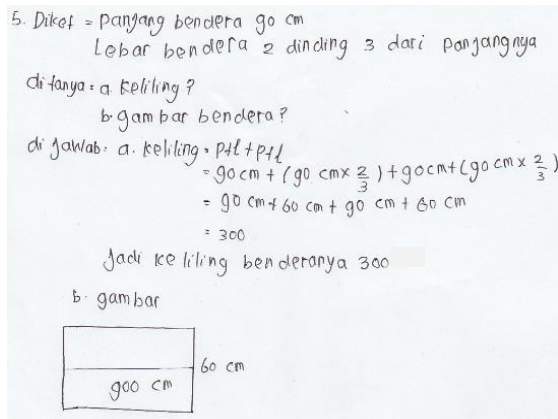 5. Diket = Panjang bendera 90 cm
Lebar bendera 2 dinding 3 dari panjangnya
ditanya = a. keliling?
b. gambar bendera?
di jawab: a. keliling = p+l+p+l
= 90 cm + (90 cm x 2/3) + 90 cm + (90 cm x 2/3)
= 90 cm + 60 cm + 90 cm + 60 cm
= 300
Jadi keliling benderanya 300
b. gambar
60 cm
900 cm